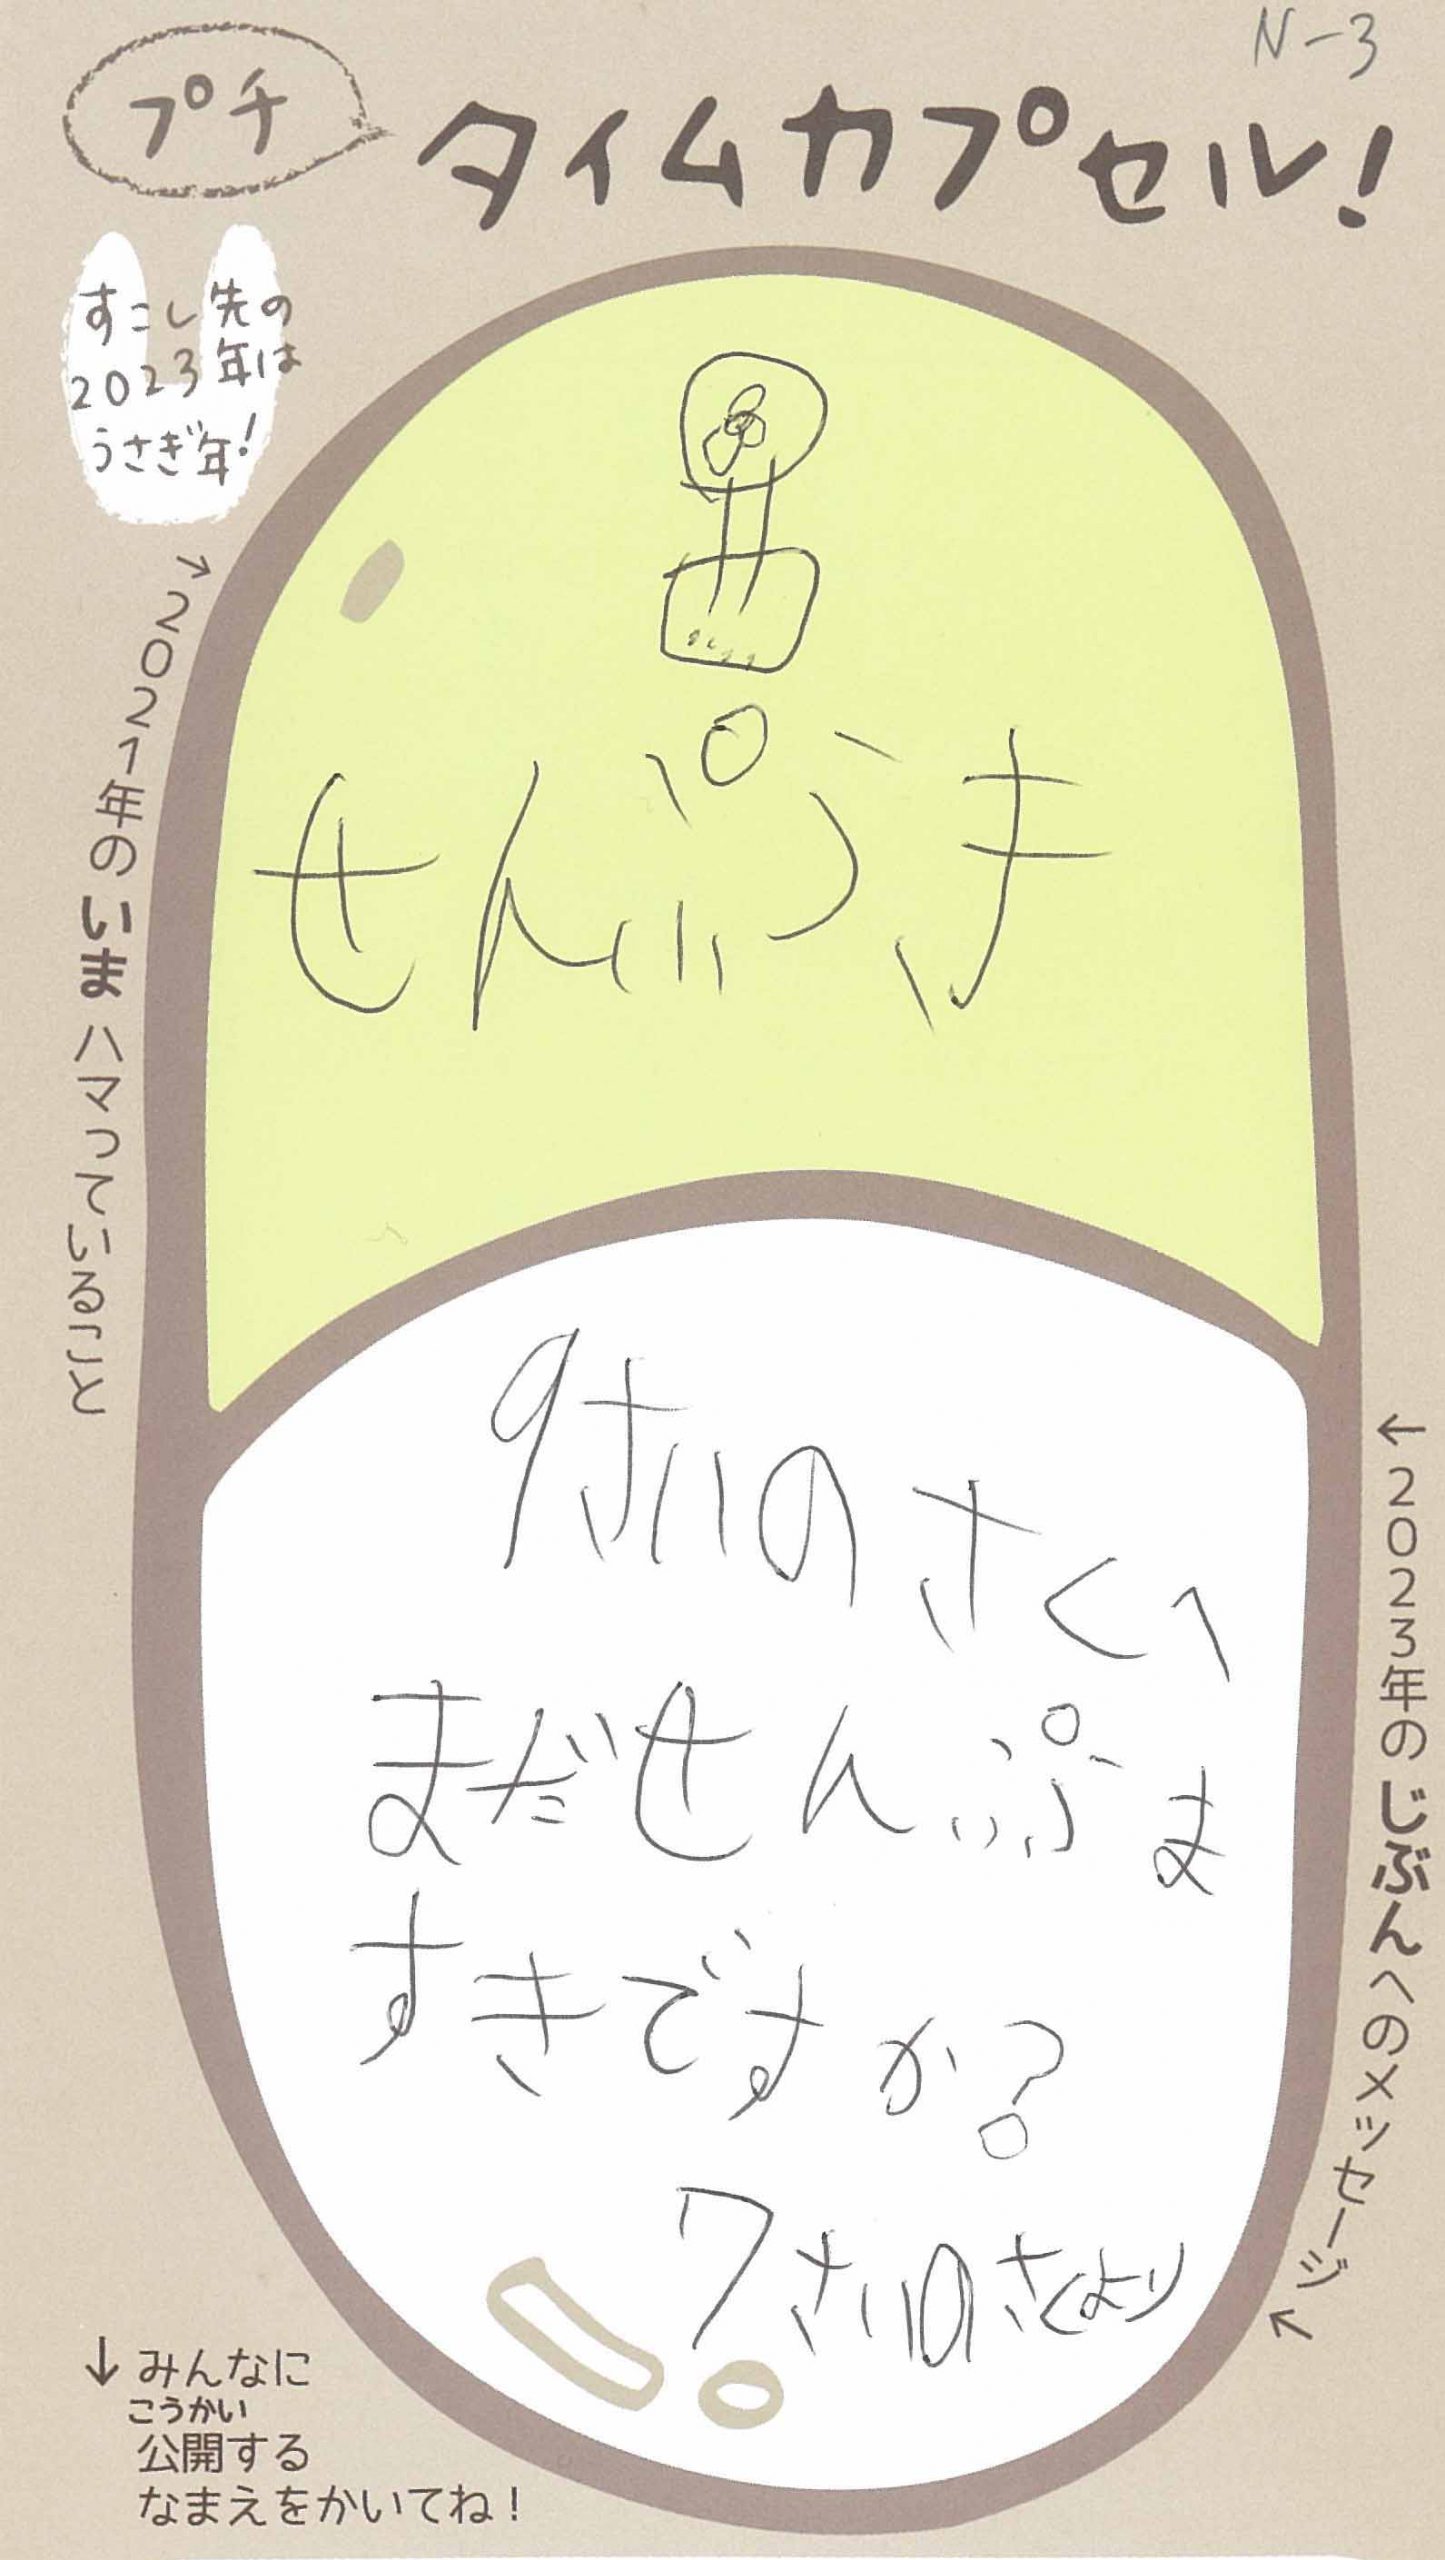 N-3
プチ
タイムカプセル!
すこし先の
2023年は
うさぎ年!
→2021年のいまハマっていること
せんぷうき
←2023年のじぶんへのメッセージ↖
9さいのさくへ
まだせんぷま
すきですか?
7さいのさくより
↓みんなに
こうかい
公開する
なまえをかいてね!